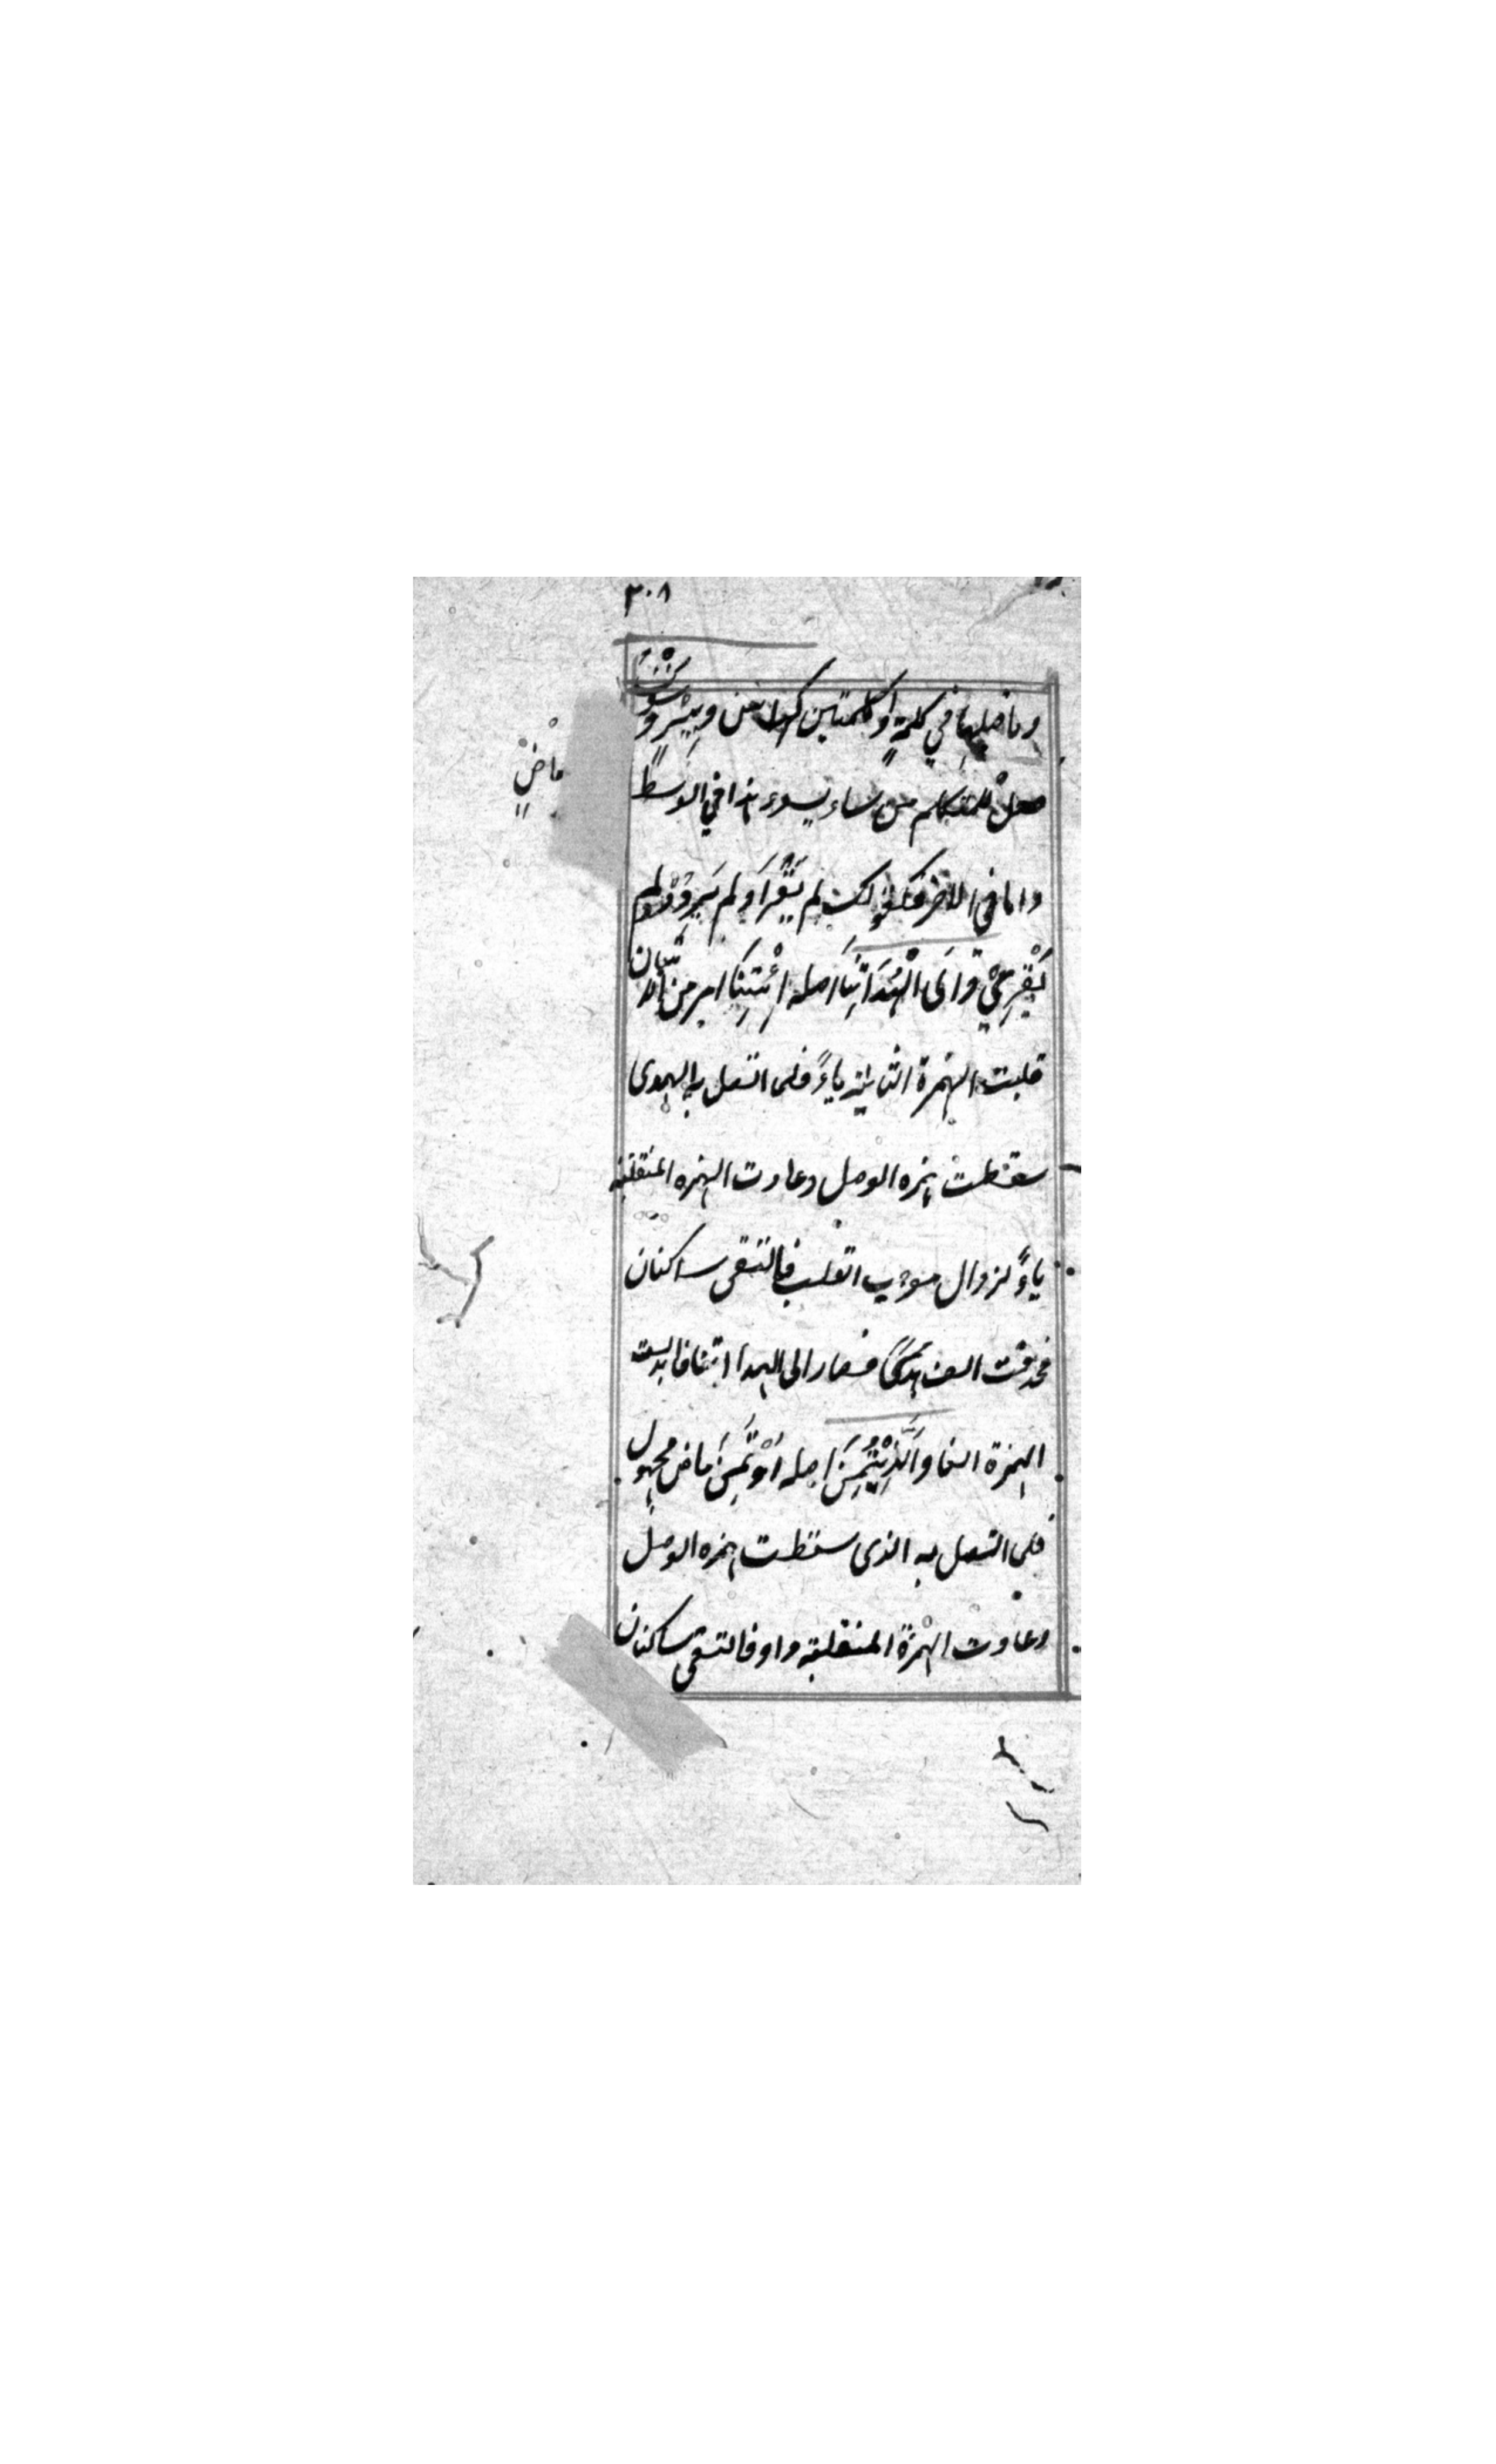 ٣٠٨
وما قبلها في كلمةٍ او كلمتين كراس وبِئْر وسُؤْتُ
ماضٍ
للمتكلم من ساء يسوء هذا في الوسط
واما في الاخر فكقولك لم يَقْرَأ ولم يَرْدُؤْ ولم
يُقْرِئْ والى الْهُدَاتِنَا اصله ائْتِنَا امر من الاتيان
قلبت الهمزة الثانية ياءً فلما اتصل به الهدى
سقطت همزه الوصل وعادت الهمزه المنقلبة
ياءً لزوال موجب القلب فالتقى ساكنان
فحذفت الف هدى فصار الى الهدا ائتنا فابدلت
الهمزة الفا والَّذِيْتُمِنَ اصله اُؤْتُمِنَ ماض مجهول
فلما اتصل به الذى سقطت همزه الوصل
وعادت الهمزة المنقلبة واوا فالتقى ساكنان